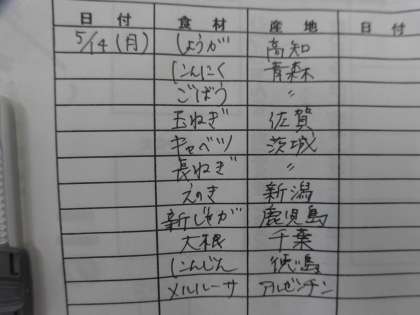 日付 食材 産地 日付
5/14(月) しょうが 高知
にんにく 青森
ごぼう 〃
玉ねぎ 佐賀
キャベツ 茨城
長ねぎ 〃
えのき 新潟
新じゃが 鹿児島
大根 千葉
にんじん 徳島
メルルーサ アルゼンチン